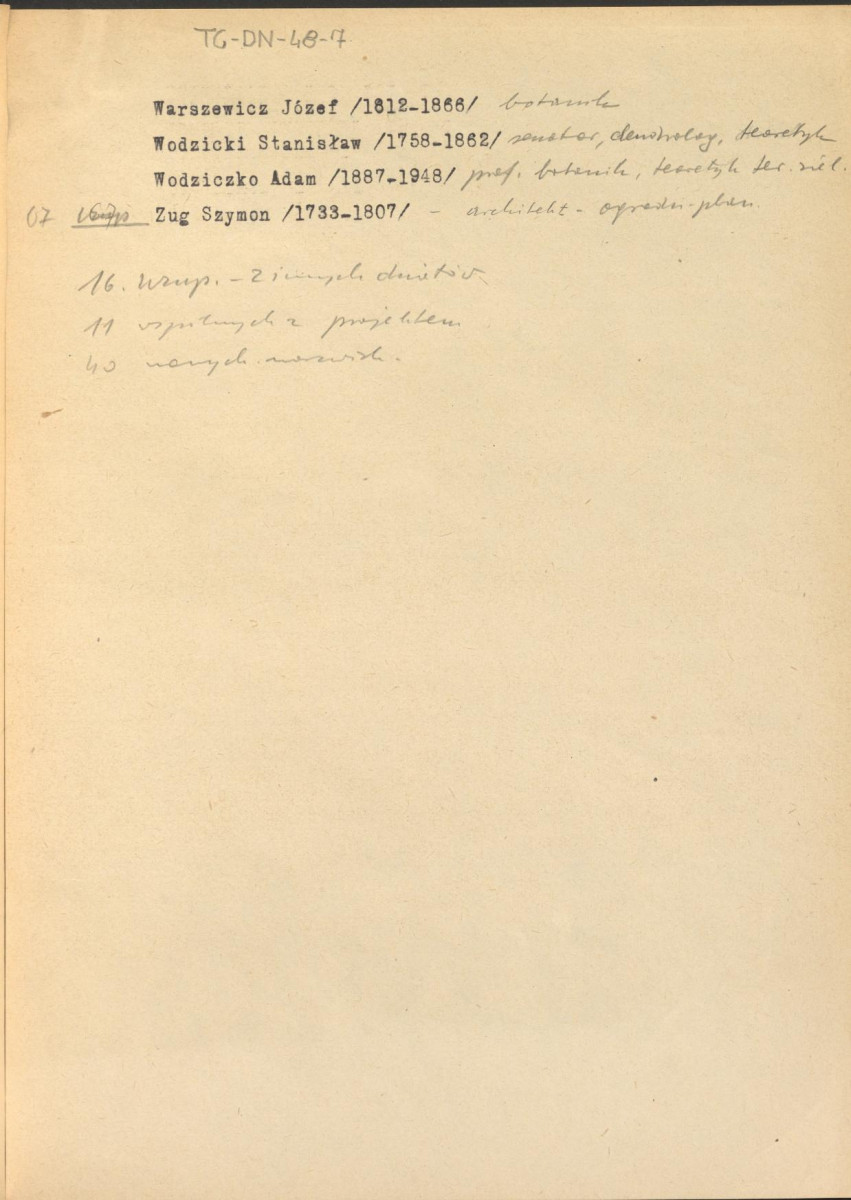 TG-DN-48-7
Warszewicz Józef /1812-1866/ botanik
Wodzicki Stanisław /1758-1862/ senator, dendrolog, teoretyk
Wodziczko Adam /1887-1948/ prof. botanik, teoretyk ter. ziel.
67 Zug Szymon /1733-1807/ - architekt - ogrodn. plan.
16. wzup. - z innych działów
11 wspólnych z projektem
40 nowych nazwisk.